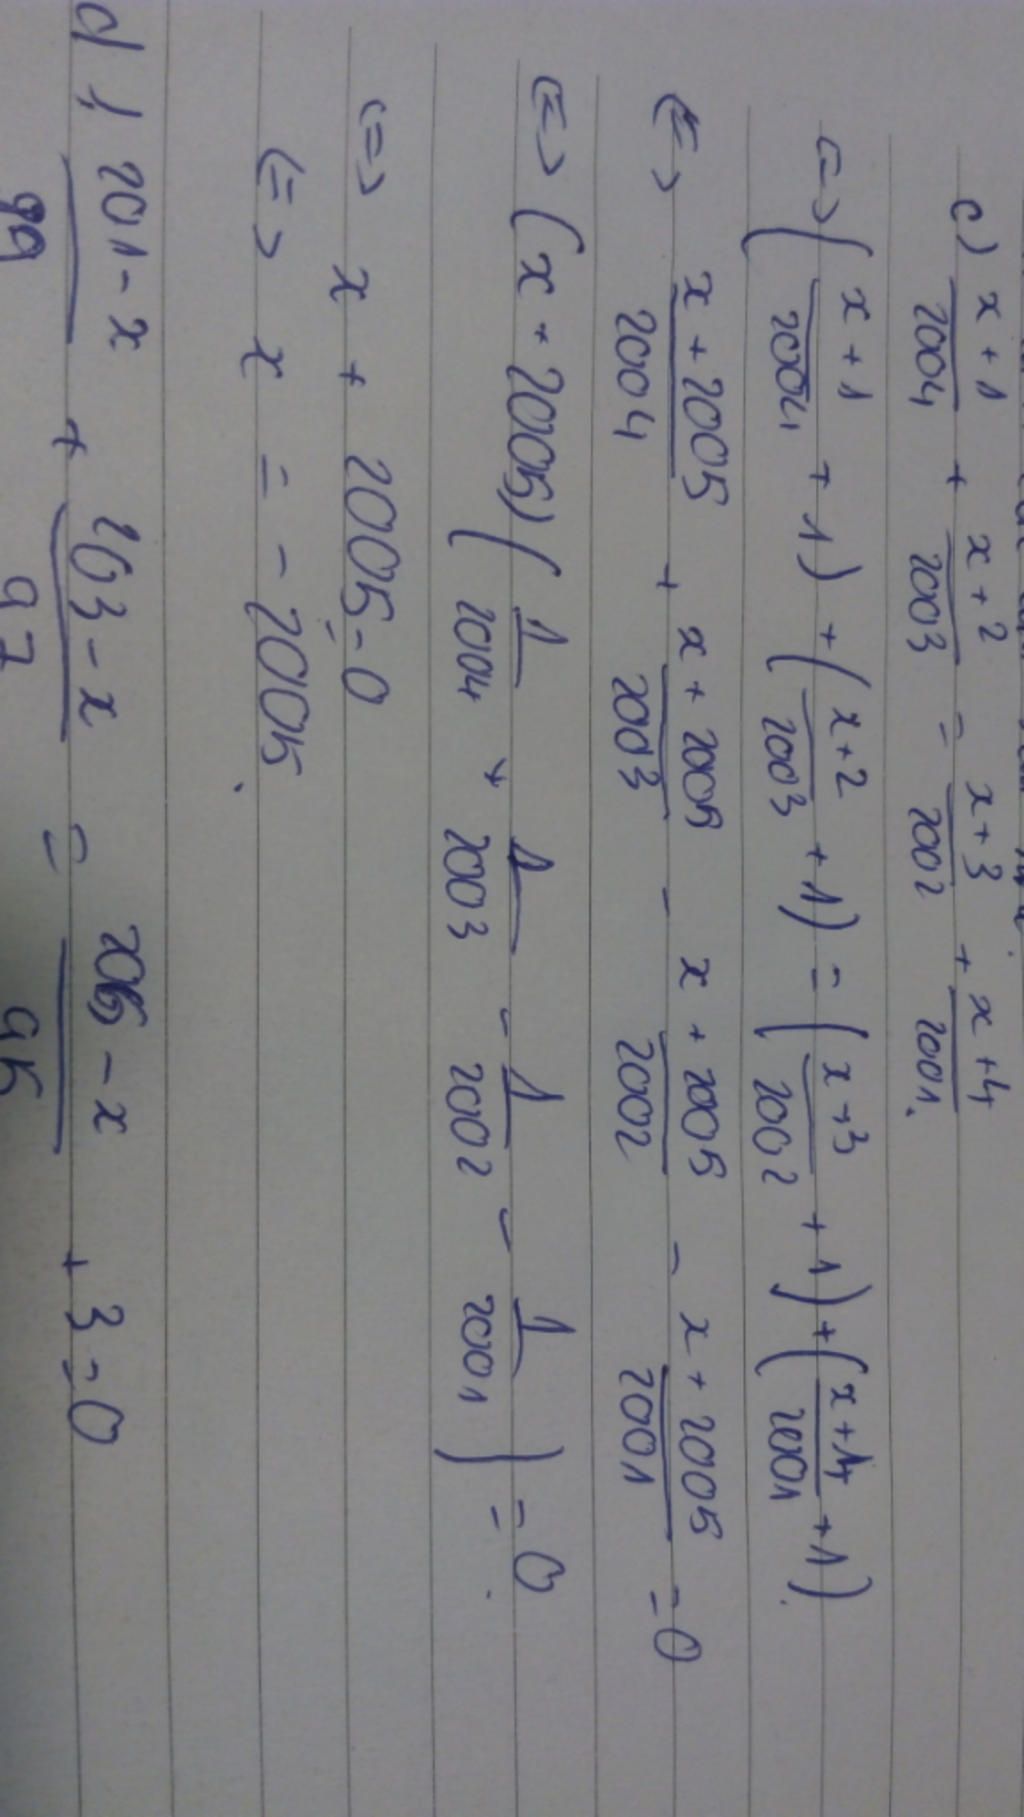 c) x+1/2004 + x+2/2003 = x+3/2002 + x+4/2001.
<=> (x+1/2004 + 1) + (x+2/2003 + 1) = (x+3/2002 + 1) + (x+4/2001 + 1).
<=> x+2005/2004 + x+2005/2003 - x+2005/2002 - x+2005/2001 = 0
<=> (x+2005) (1/2004 + 1/2003 - 1/2002 - 1/2001) = 0.
<=> x + 2005 = 0
<=> x = -2005.
d) 201-x/99 + 203-x/97 = 205-x/95 + 3 = 0